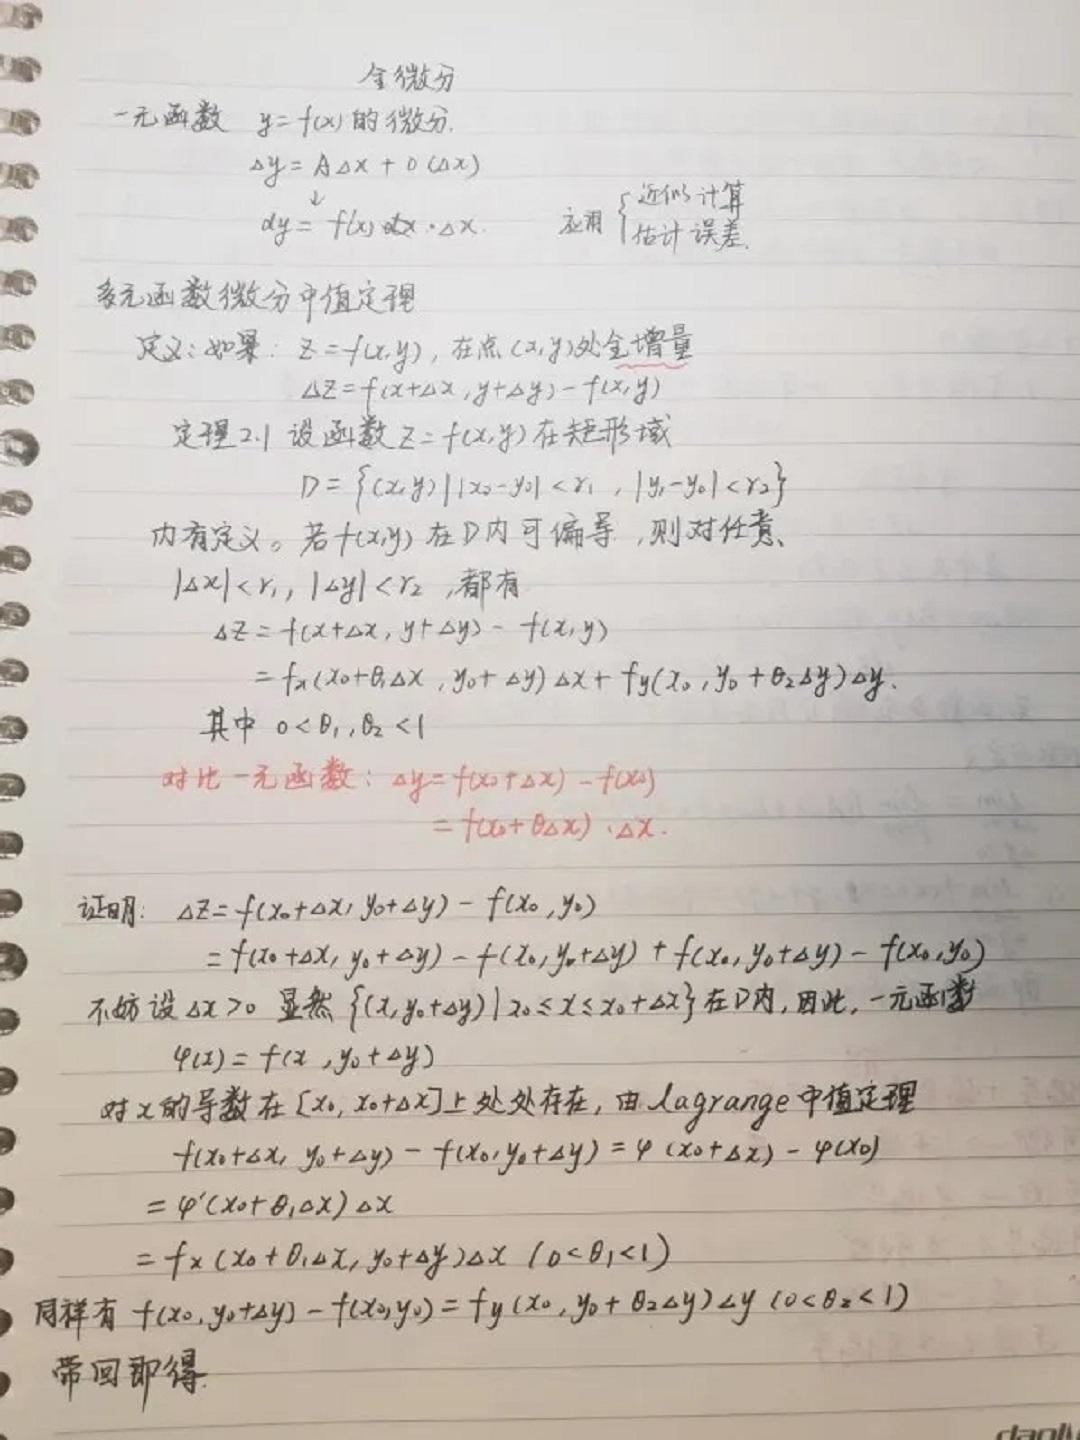 全微分
一元函数 y=f(x)的微分.
Δy=AΔx+o(Δx)
↓
dy=f(x) ·Δx.
应用{近似计算
估计误差.
多元函数微分中值定理
定义:如果: z=f(x,y), 在点(x,y)处全增量
ΔZ=f(x+Δx,y+Δy)-f(x,y)
定理2.1 设函数Z=f(x,y)在矩形域
D={(x,y)||x0-y0|<r1, |y1-y0|<r2}
内有定义。若f(x,y)在D内可偏导,则对任意、
|Δx|<r1, |Δy|<r2,都有
ΔZ=f(x+Δx, y+Δy)- f(x,y)
=fx(x0+θ1Δx,y0+Δy)Δx+fy(x0,y0+θ2Δy)Δy.
其中 0<θ1,θ2<1
对比一元函数: Δy=f(x0+Δx)-f(x0)
=f(x0+θΔx)·Δx.
证明: ΔZ=f(x0+Δx, y0+Δy)-f(x0,y0)
=f(x0+Δx, y0+Δy)-f(x0,y0+Δy)+f(x0,y0+Δy)-f(x0,y0)
不妨设Δx>0 显然{(x,y0+Δy)|x0≤x≤x0+Δx}在D内,因此,一元函数
φ(x)=f(x,y0+Δy)
对x的导数在[x0, x0+Δx]上处处存在,由lagrange中值定理
f(x0+Δx, y0+Δy)-f(x0,y0+Δy)=φ(x0+Δx)-φ(x0)
=φ'(x0+θ1Δx)Δx
=fx(x0+θ1Δx, y0+Δy)Δx (0<θ1<1)
同样有 f(x0,y0+Δy)-f(x0,y0)=fy(x0,y0+θ2Δy)Δy(0<θ2<1)
带回即得.